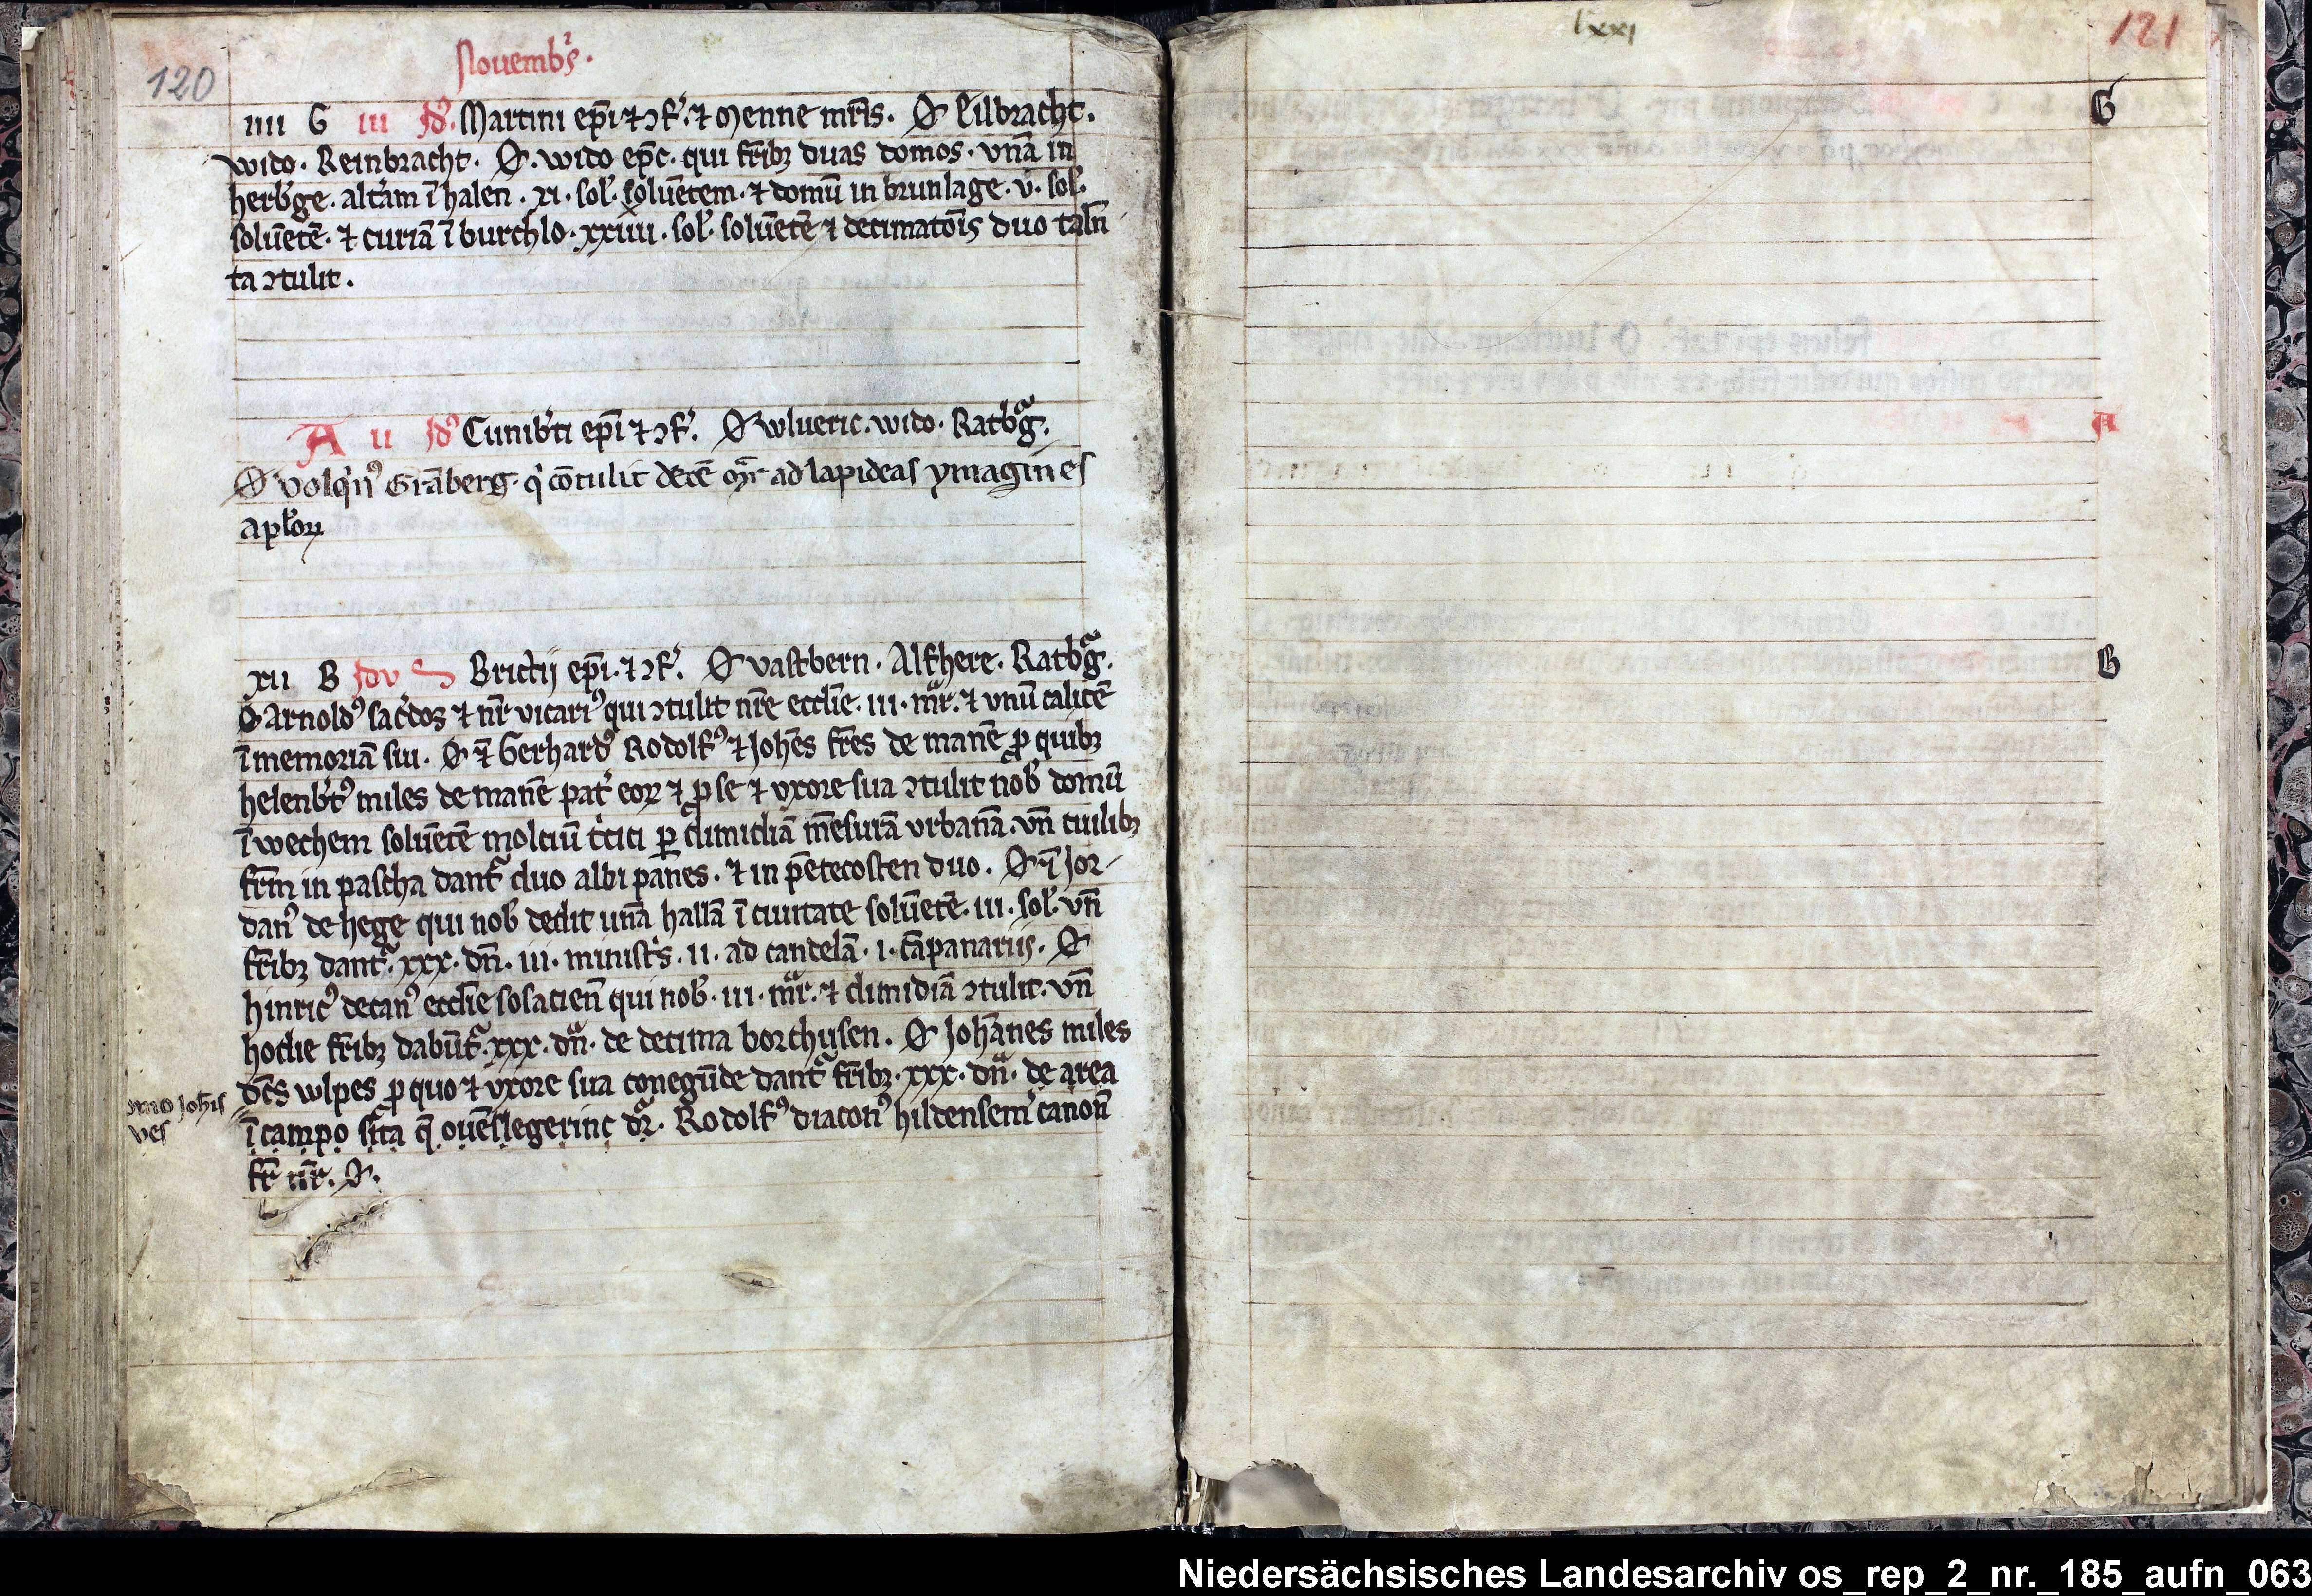 120
Nouembʳs.
iiii G iii Jdꝰ. Martini ep̄i ⁊ ɔf̉. ⁊ Menne mr̄is. O Eilbracht.
Wido. Reinbracht. O. Wido ep̄c. qui fr̄ibꝫ duas domos. vnā in
herb̉ge. alt̉am ī halen. xi. sol̉. soluētem. ⁊ domū in brunlage. v. sol̉.
soluētē. ⁊ curiā ī burchlo. xxiiii. sol̉. soluētē ⁊ decimatōis duo taln̄
ta ɔtulit.
A ii Jdꝰ Cunib̉ti ep̄i ⁊ ɔf̉. O Wlueric. Wido. Ratbᵃg̉.
O volq̉nꝰ Grāberg. q̉ cōtulit decē mᵃr ad lapideas ymagines
apl̉oꝝ
xii B Jdvs Brictij ep̄i. ⁊ ɔf̉. O vastbern. Alfhere. Ratbᵃg̉.
O Arnoldꝰ sac̉dos ⁊ nr̄ vicariꝰ qui ɔtulit nr̄e eccl̄ie. iii. mᵃr. ⁊ vnū calicē
ī memoriā sui. O ⁊ Gerhardꝰ Rodolfꝰ ⁊ Joh̄es fr̄es de manē ꝓ quibꝫ
helenb̉tꝰ miles de manē pat̉ eoꝝ ⁊ ꝓ se ⁊ vxore sua ɔtulit nob̉ domū
ī wechem soluētē molciū t̉tici ꝑ dimidiā mēsurā vrbanā. vn̄ cuilibꝫ
fr̄m in pascha dant̉ duo albi panes. ⁊ in pētecosten duo. O ī Jor-
danꝰ de hege qui nob̉ dedit unā hallā ī ciuitate soluētē. iii. sol̉. vn̄
fr̄ibꝫ dant̉. xxx. dn̄. iii. minist̉s. ii. ad candelā. i. cāpanariis. O
hinricꝰ decanꝰ eccl̄ie sosacien̄ qui nob̉. iii. mᵃr. ⁊ dimidiā ɔtulit. vn̄
hodie fr̄ibꝫ dabūt̉. xxx. dn̄. de decima borchusen. O Joh̄anes miles
dc̄s wlpes ꝓ quo ⁊ vxore sua conegūde dant̉ fr̄ibꝫ. xxx. dn̄. de area
ī campo sīta q̄ ouēslegerinc dr̄. Rodolfꝰ diaconꝰ hildensem̉ canon̄
fr̄ nr̄. O.
Joh̄is
ves
lxxi
121
G
A
B
Niedersächsisches Landesarchiv os_rep_2_nr._185_aufn_063